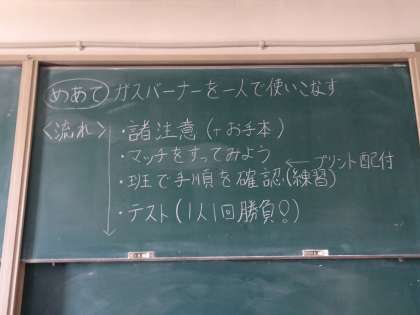 めあて ガスバーナーを一人で使いこなす
<流れ> ・諸注意(+お手本)
・マッチをすってみよう
←プリント配付
・班で手順を確認(練習)
・テスト(1人1回勝負!)